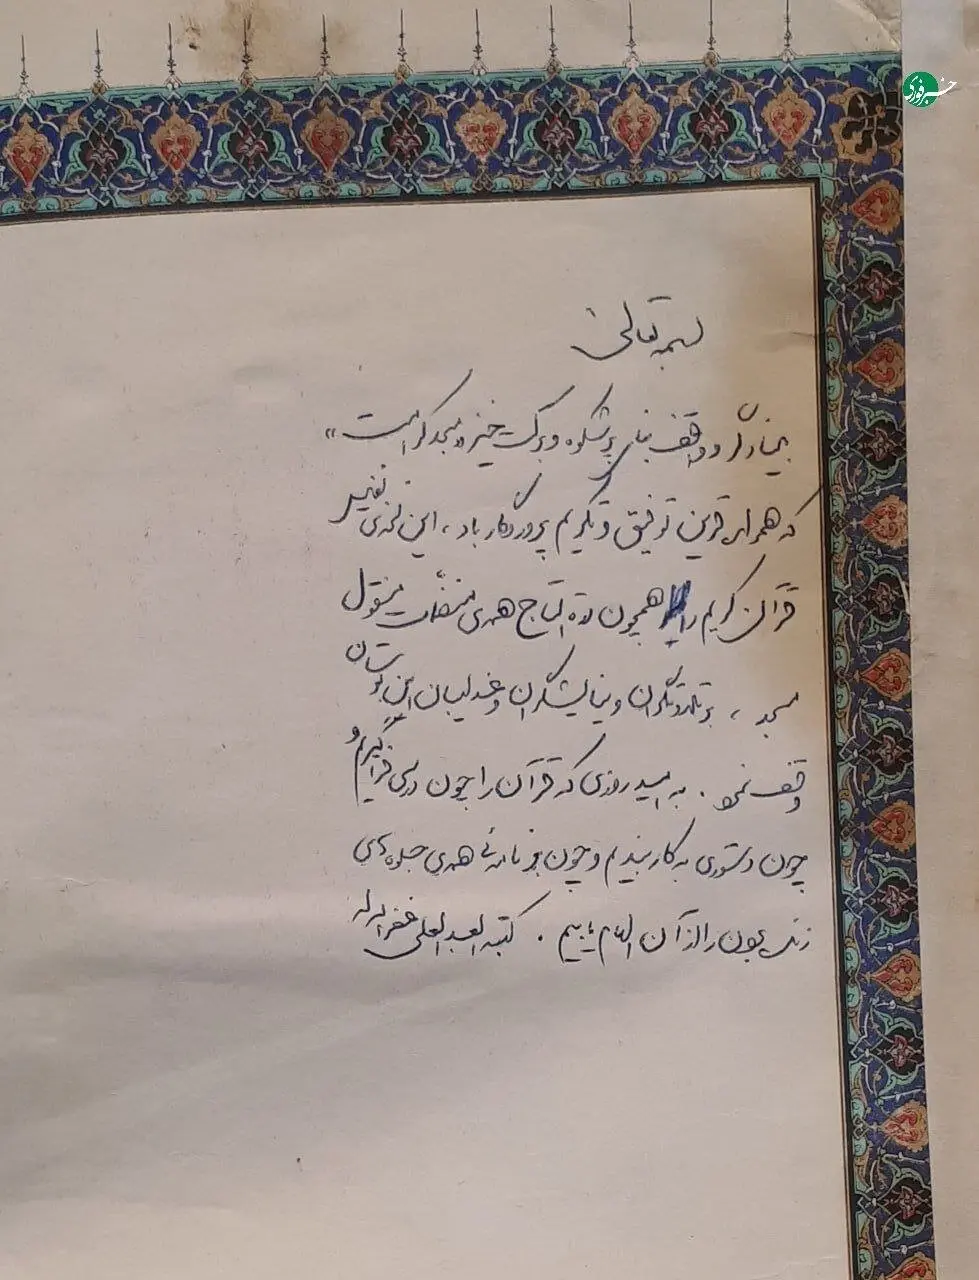 خبرفوری
بسمه تعالی
بنیادگر و واقف بنای پرشکوه و برکت خیز «مسجد کرامت»
که همواره قرین توفیق و تکریم پروردگار باد، این نسخه‌ی تفسیر
قرآن کریم را همچون درة التاج همه‌ی متصلات منقول
مسجد، بر تلاوتگران و نیایشگران و عندلیبان این بوستان
وقف نمود. به امید روزی که قرآن را چون درسی فراگیریم و
چون دستوری به کار بندیم و چون برنامه‌ئی همه‌ی جلوه‌های
زندگیمون را از آن الهام یابیم. کتبه العبد العلی غفرالله له